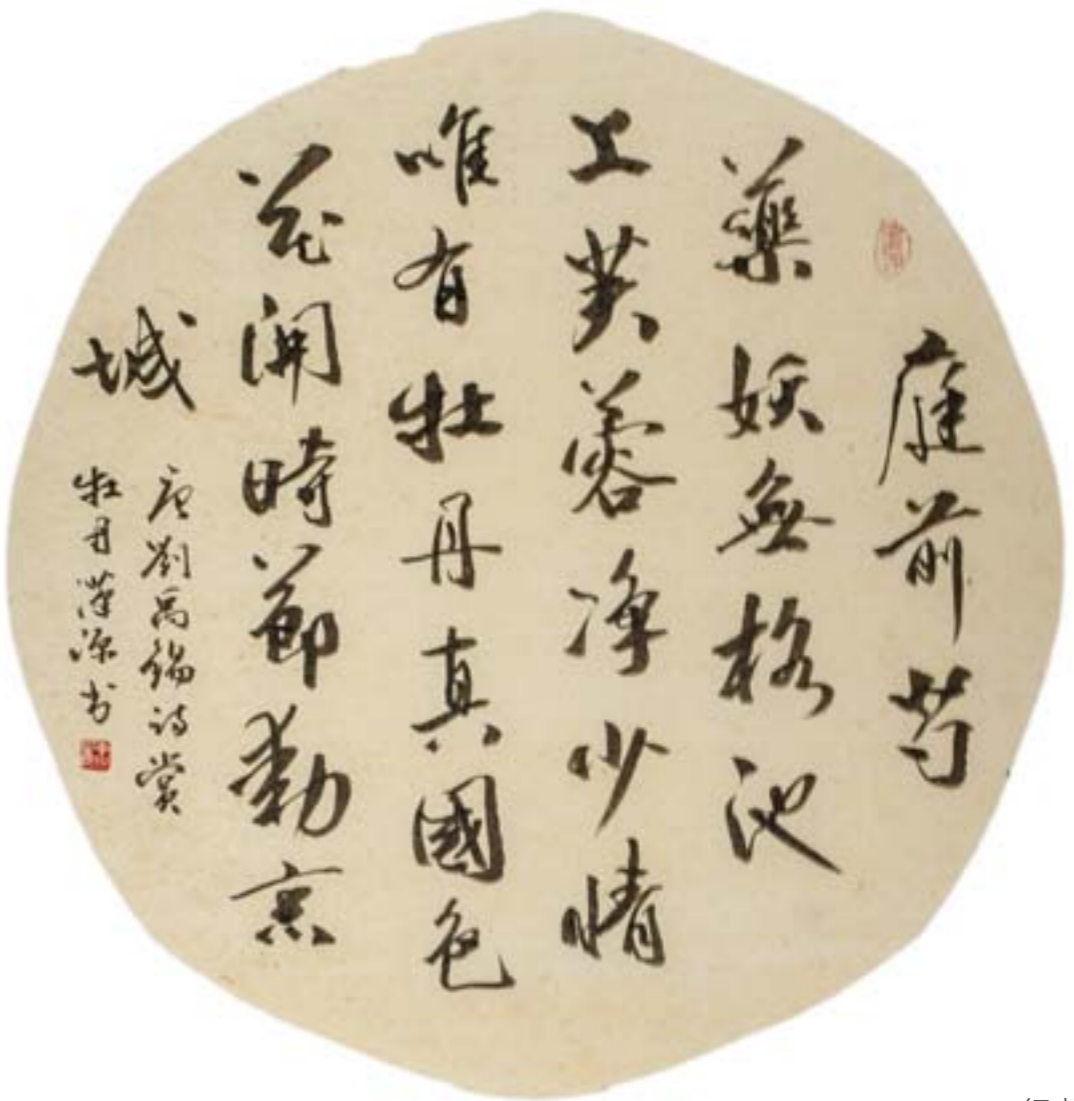 庭前芍
藥妖無格池
上芙蓉净少情
唯有牡丹真國色
花開時節動京
城
唐劉禹錫詩賞
牡丹
书